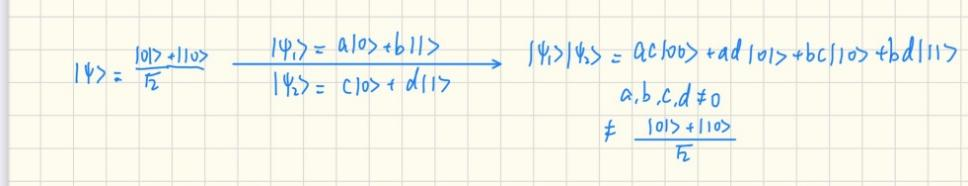 |ψ> = |01>+|10> / √2
|ψ₁> = a|0>+b|1>
|ψ₂> = c|0>+d|1>
|ψ₁>|ψ₂> = ac|00>+ad|01>+bc|10>+bd|11>
a,b,c,d≠0
≠ |01>+|10> / √2